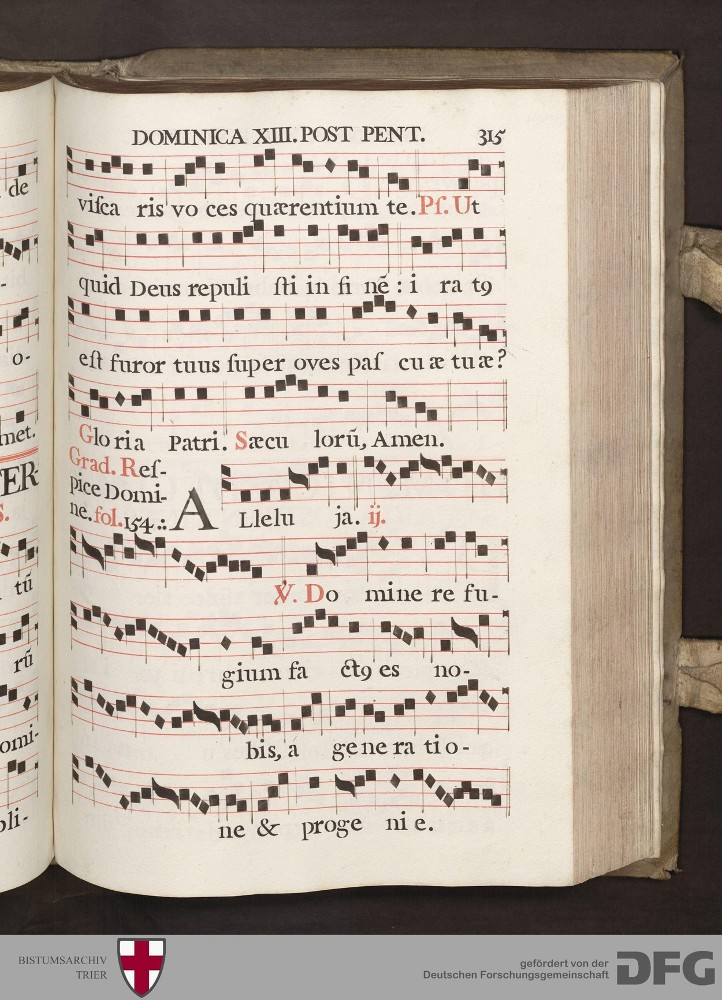 DOMINICA XIII. POST PENT. 315
viſca ris vo ces quærentium te. Pſ. Ut
quid Deus repuli ſti in fi nē : i ra tꝯ
eſt furor tuus ſuper oves paſ cu æ tu æ?
Glo ria Patri. Sæcu lorū, Amen.
Grad. Reſ-
pice Domi-
ne. fol. 154 .:
A Llelu ja. ij.
℣. Do mine re fu-
gium fa ctꝯ es no-
bis, á ge ne ra ti o-
ne & proge ni e.
de
-
o-
met.
ER-
S.
tū
rū
omi-
oli-
BISTUMSARCHIV
TRIER
gefördert von der
Deutschen Forschungsgemeinschaft
DFG